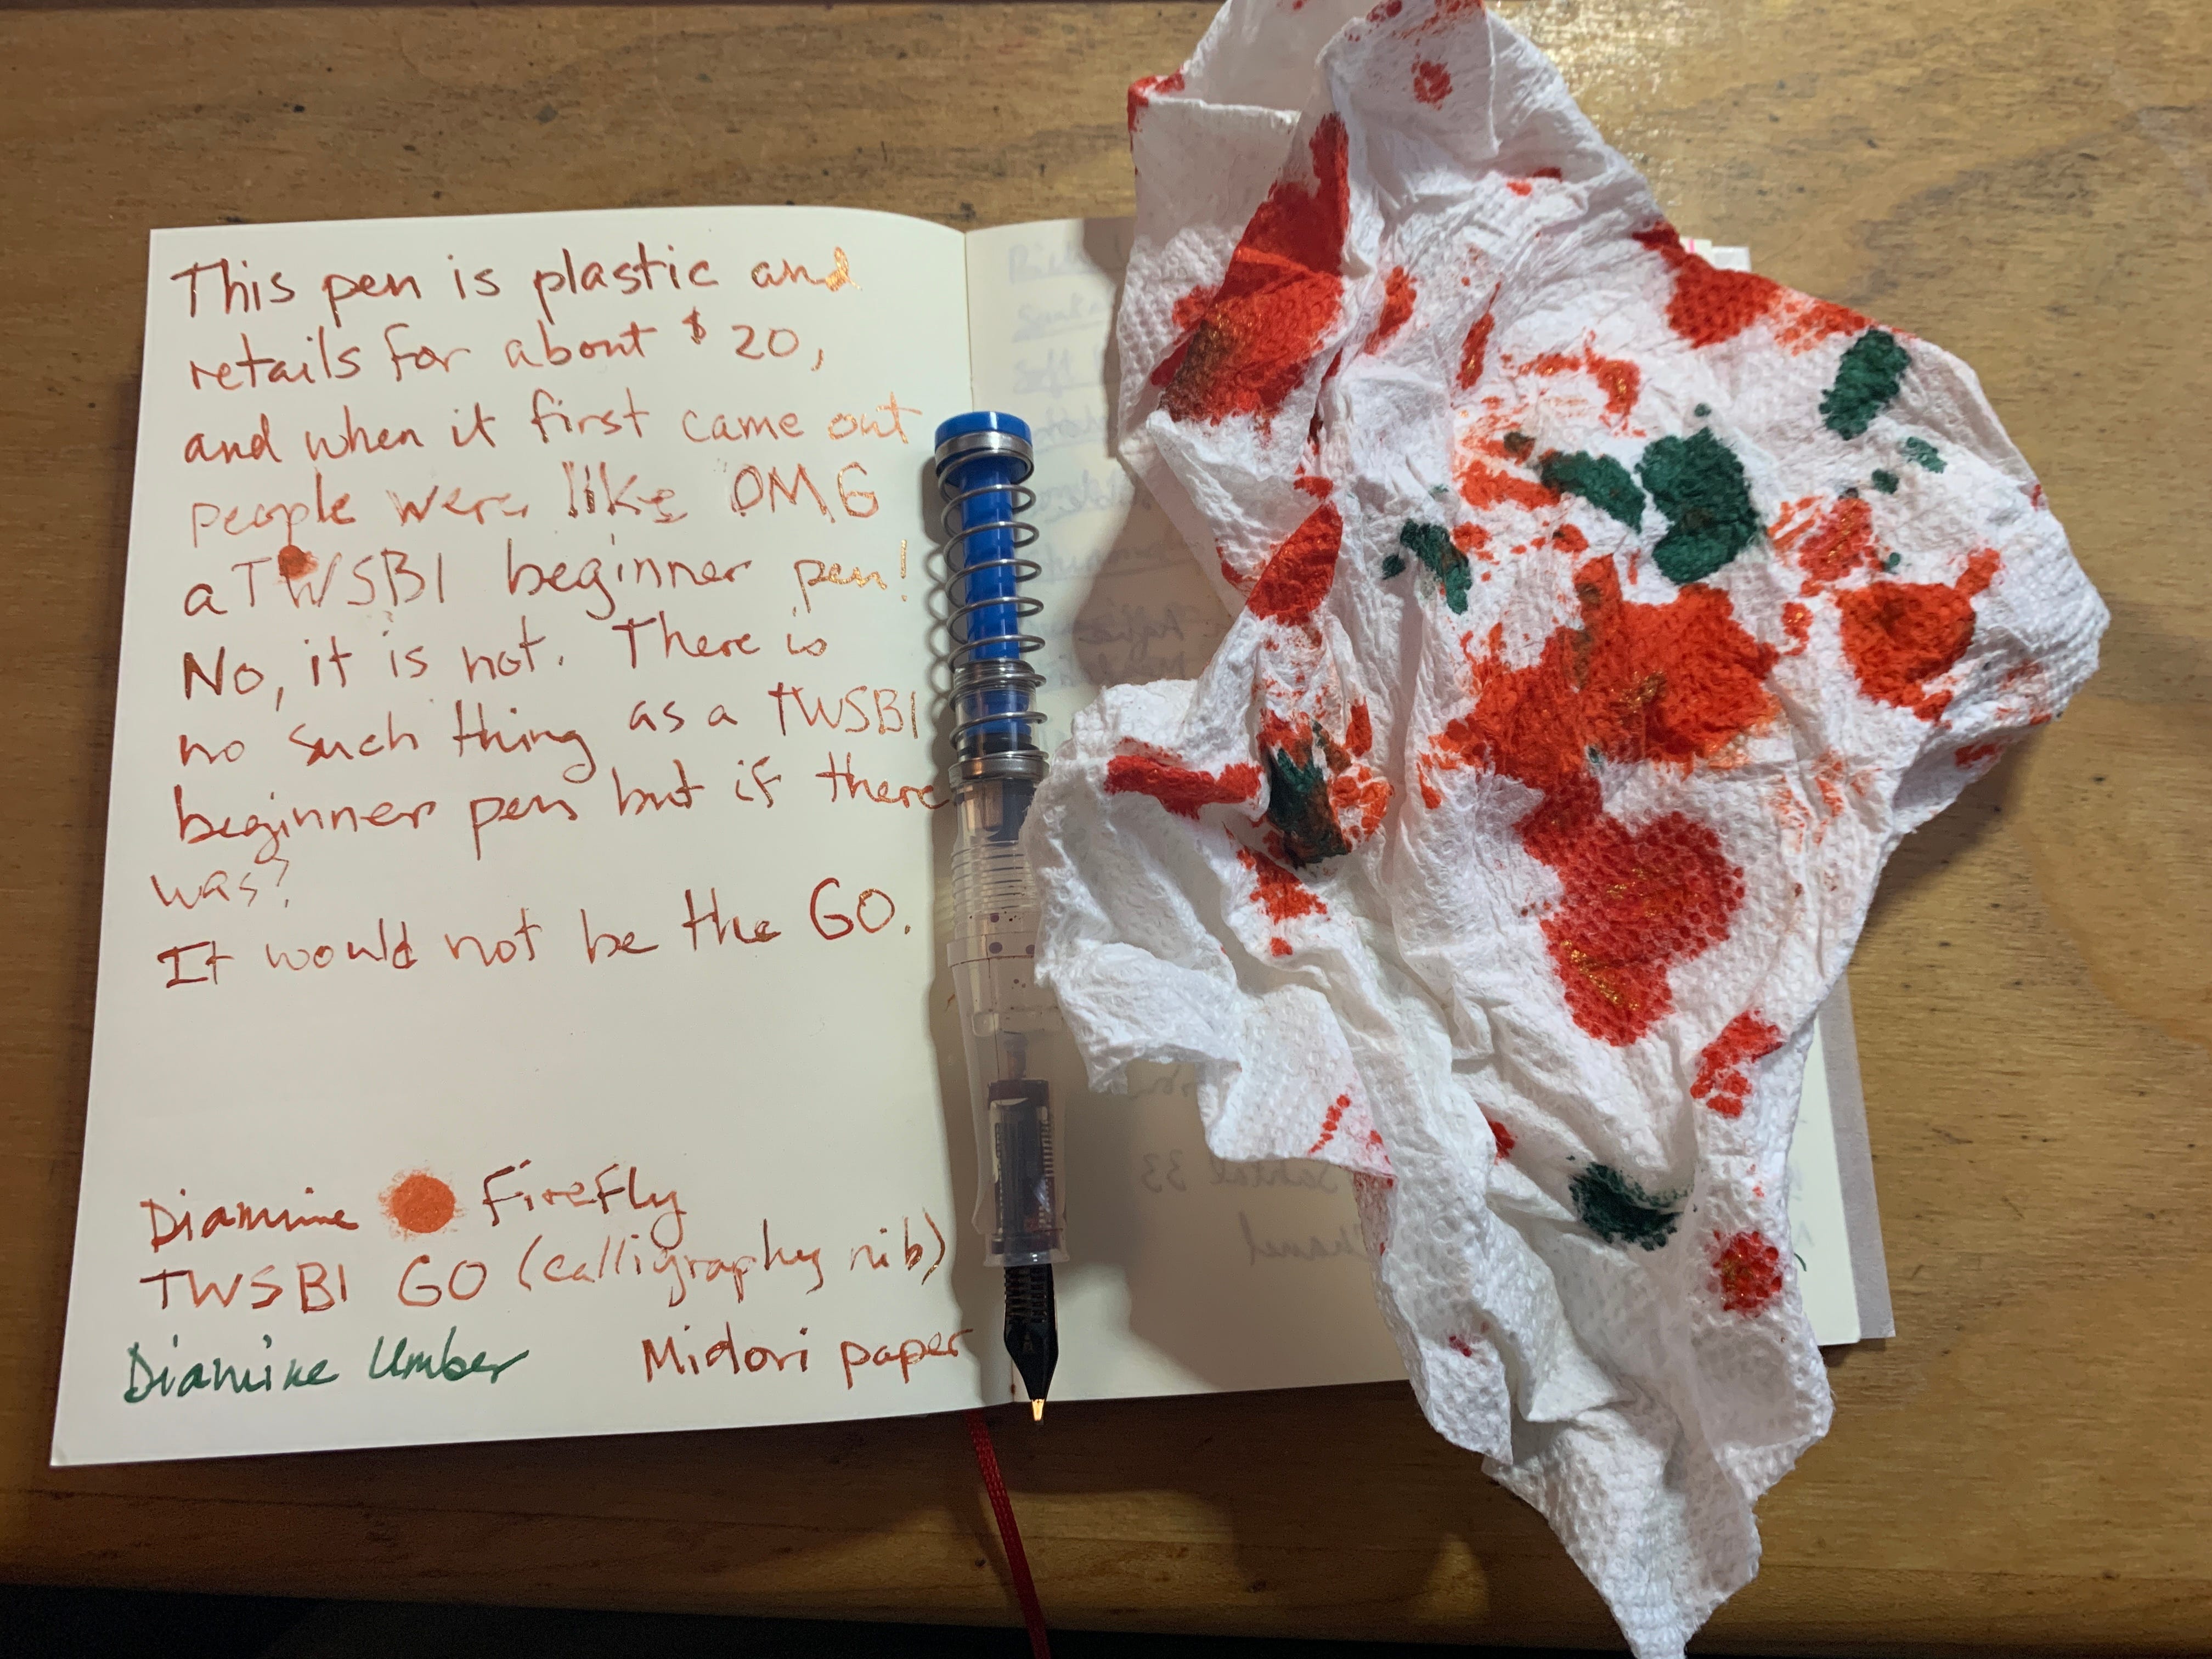 This pen is plastic and
retails for about $20,
and when it first came out
people were like OMG
a TWSBI beginner pen!
No, it is not. There is
no such thing as a TWSBI
beginner pen but if there
was?
It would not be the GO.
Diamine Firefly
TWSBI GO (calligraphy nib)
Diamine Umber Midori paper